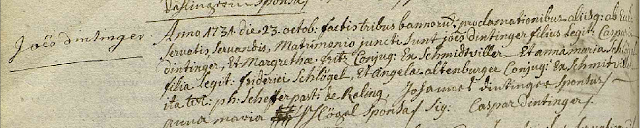 Joês dintinger
Anno 1731 die 23 octob: factis tribus bannorū proclamationibus aliisq:
servatis servandis, Matrimonio juncti sunt joês dintinger filius legit: Caspar
dintinger, Et Margretha fritz Conjug: Ex Schmidtviller – Et anna maria
filia legit: friderici Schlögel, Et Angela altenburger Conjug: Ex Schmitv
ita test: ph: Scheffer past: de Kaling, Johannes dintinger Sponsus
anna maria Schlögel Sponsa Sig: Caspar dintinger